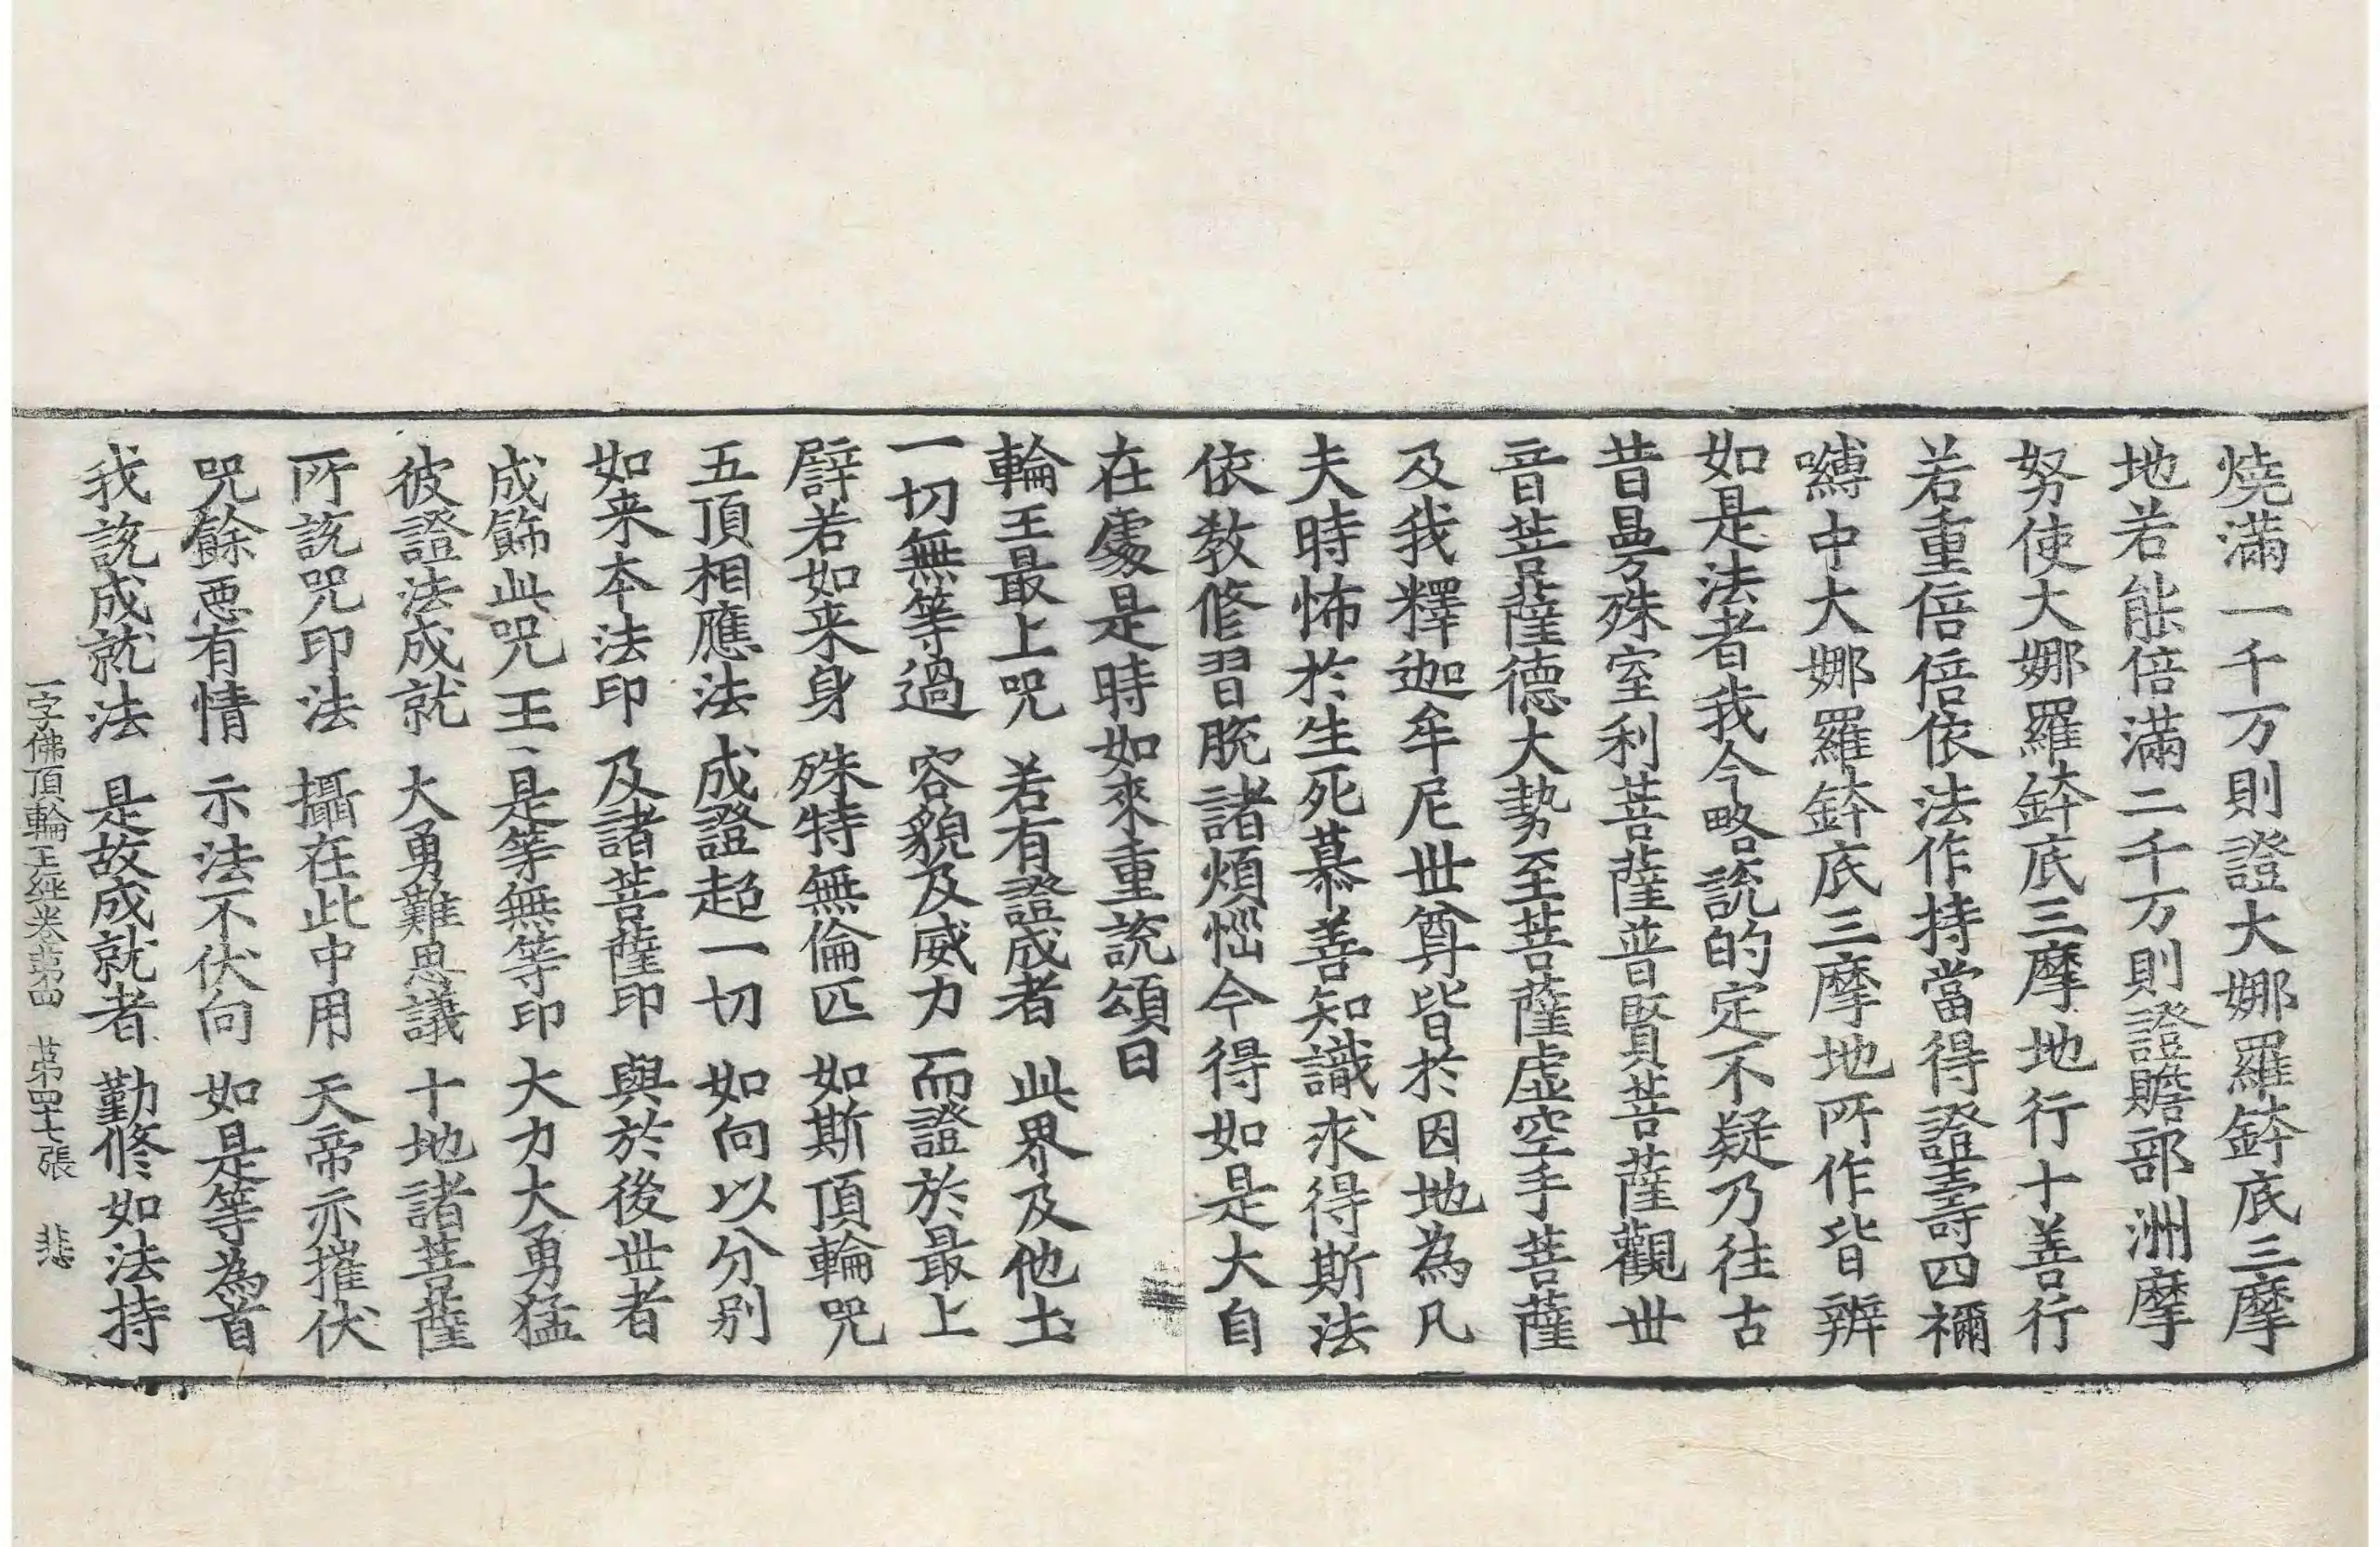 燒滿一千万則證大娜羅鉢底三摩
地若能倍滿二千万則證贍部洲摩
努使大娜羅鉢底三摩地行十善行
若重倍倍依法作持當得證壽四禰
嚩中大娜羅鉢底三摩地所作皆辦
如是法者我今略說的定不疑乃往古
昔曼殊室利菩薩普賢菩薩觀世
音菩薩德大勢至菩薩虛空手菩薩
及我釋迦牟尼世尊皆於因地為凡
夫時怖於生死慕善知識求得斯法
依教修習脫諸煩惱今得如是大自
在處是時如來重說頌曰
輪王最上咒　若有證成者　此界及他土
一切無等過　容貌及威力　而證於最上
譬若如来身　殊特無倫匹　如斯頂輪咒
五頂相應法　成證超一切　如向以分別
如来本法印　及諸菩薩印　與於後世者
成飾此咒王　是等無等印　大力大勇猛
彼證法成就　大勇難思議　十地諸菩薩
所說咒印法　攝在此中用　天帝亦摧伏
咒餘惡有情　示法不伏向　如是等為首
我說成就法　是故成就者　勤修如法持
一字佛頂輪王經卷第四　第四十七張　悲